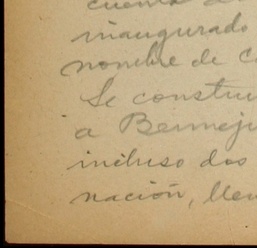 cuenta
inaugurado
nombre de
Se constru
a Bermej
incluso dos
nación, lle